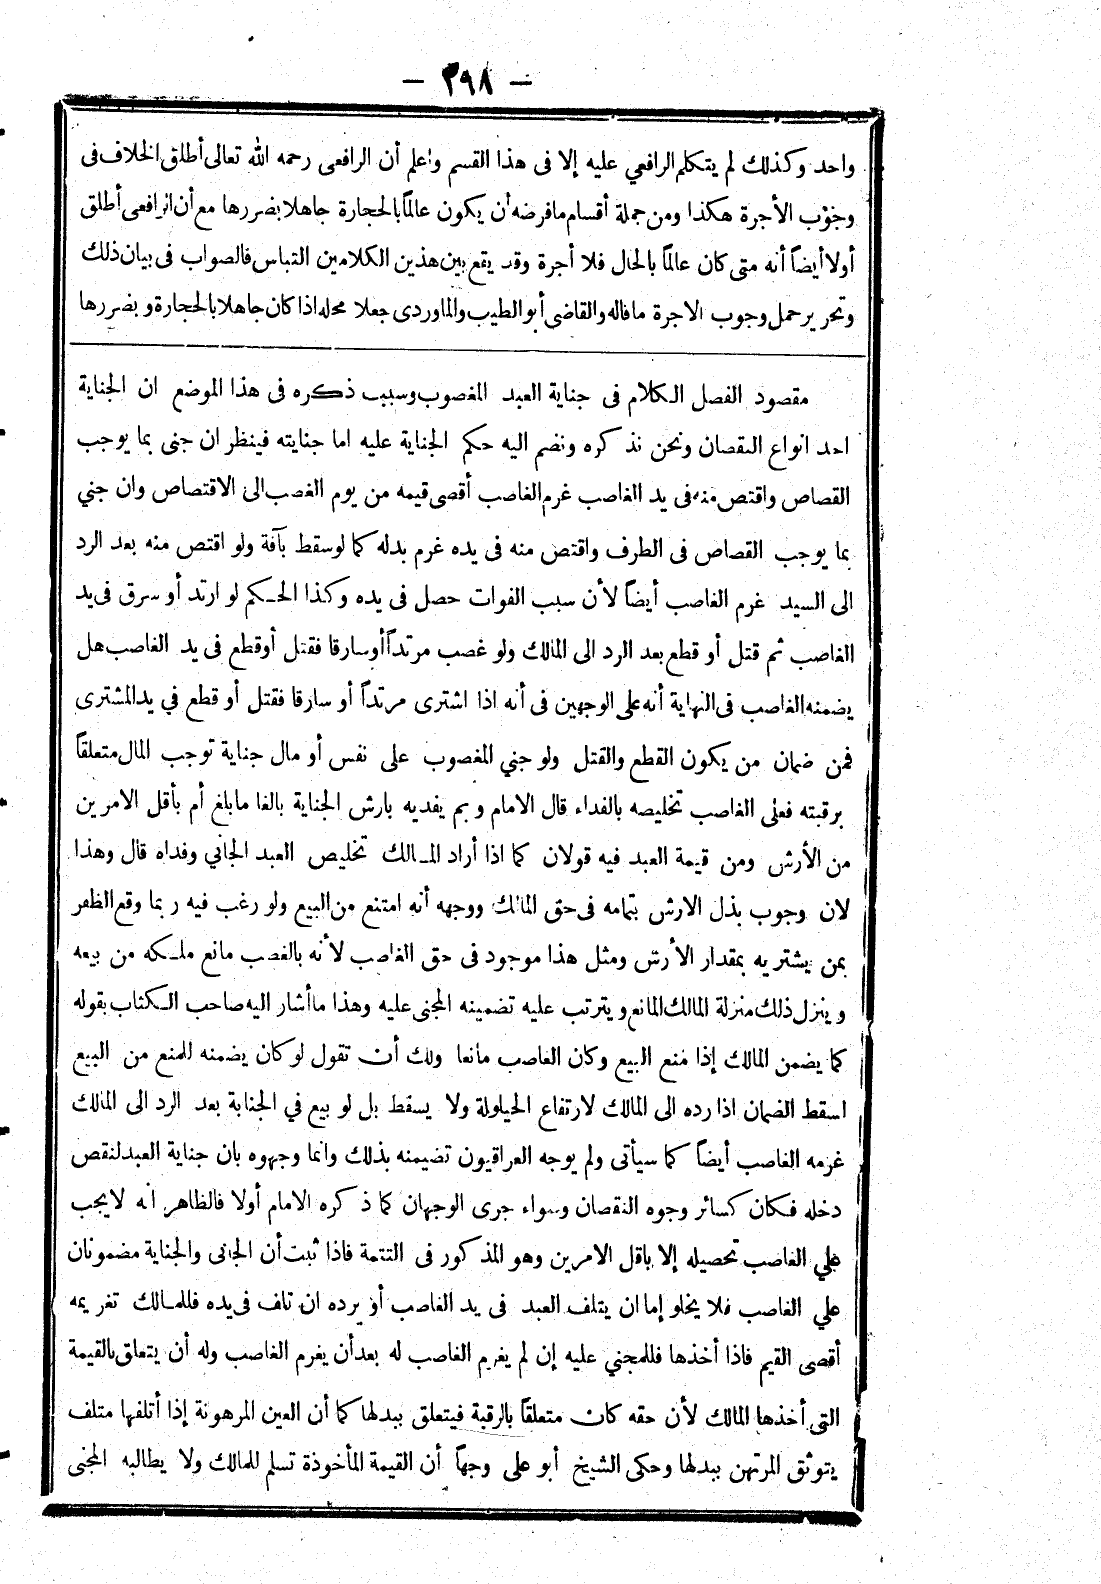 — ٢٩٨ —
واحد وكذلك لم يتكلم الرافعي عليه إلا فى هذا القسم واعلم أن الرافعى رحمه الله تعالى أطلق الخلاف فى
وجوب الأجرة هكذا ومن جملة أقسام ما فرضه أن يكون عالماً بالحجارة جاهلا بضررها مع أن الرافعى أطلق
أولا أيضاً أنه متى كان عالماً بالحال فلا أجرة وقد يقع بين هذين الكلامين التباس فالصواب فى بيان ذلك
وتحرير حمل وجوب الاجرة ما قاله والقاضى أبو الطيب والماوردى جعلا محله اذا كان جاهلا بالحجارة وبضررها
مقصود الفصل الكلام فى جناية العبد المغصوب وسبب ذكره فى هذا الموضع ان الجناية
احد انواع النقصان ونحن نذكره ونضم اليه حكم الجناية عليه اما جنايته فينظر ان جنى بما يوجب
القصاص واقتص منه فى يد الغاصب غرم الغاصب أقصى قيمه من يوم الغصب الى الاقتصاص وان جني
بما يوجب القصاص فى الطرف واقتص منه فى يده غرم بدله كما لو سقط بآفة ولو اقتص منه بعد الرد
الى السيد غرم الغاصب أيضاً لأن سبب الفوات حصل فى يده وكذا الحكم لو ارتد أو سرق فى يد
الغاصب ثم قتل أو قطع بعد الرد الى المالك ولو غصب مرتداً أو سارقا فقتل أو قطع فى يد الغاصب هل
يضمنه الغاصب فى النهاية أنه على الوجهين فى أنه اذا اشترى مرتداً أو سارقا فقتل أو قطع في يد المشترى
فمن ضمان من يكون القطع والقتل ولو جني المغصوب على نفس أو مال جناية توجب المال متعلقاً
برقبته فعلى الغاصب تخليصه بالفداء قال الامام وبم يفديه بارش الجناية بالغا ما بلغ أم بأقل الامرين
من الأرش ومن قيمة العبد فيه قولان كما اذا أراد المالك تخليص العبد الجاني وفداه قال وهذا
لان وجوب بذل الارش بتمامه فى حق المالك ووجهه أنه امتنع من البيع ولو رغب فيه ربما وقع الظفر
بمن يشتريه بمقدار الأرش ومثل هذا موجود فى حق الغاصب لأنه بالغصب مانع ملكه من بيعه
وينزل ذلك منزلة المالك المانع ويترتب عليه تضمينه المجنى عليه وهذا ما أشار اليه صاحب الكتاب بقوله
كما يضمن المالك إذا منع البيع وكان الغاصب مانعا ولك أن تقول لو كان يضمنه للمنع من البيع
اسقط الضمان اذا رده الى المالك لارتفاع الحيلولة ولا يسقط بل لو بيع في الجناية بعد الرد الى المالك
غرمه الغاصب أيضاً كما سيأتى ولم يوجه العراقيون تضيمنه بذلك وانما وجهوه بان جناية العبد لنقص
دخله فكان كسائر وجوه النقصان وسواء جرى الوجهان كما ذكره الامام أولا فالظاهر انه لا يجب
علي الغاصب تحصيله إلا باقل الامرين وهو المذكور فى التتمة فاذا ثبت أن الجانى والجناية مضمونان
علي الغاصب فلا يخلو إما ان يتلف العبد فى يد الغاصب أو يرده ان تلف فى يده فللمالك تغريمه
أقصى القيم فاذا أخذها فللمجني عليه إن لم يغرم الغاصب له بعد أن يغرم الغاصب وله أن يتعلق بالقيمة
التى أخذها المالك لأن حقه كان متعلقاً بالرقبة فيتعلق ببدلها كما أن العين المرهونة إذا أتلفها متلف
يتوثق المرتهن ببدلها وحكى الشيخ أبو على وجهاً أن القيمة المأخوذة تسلم للمالك ولا يطالبه المجنى